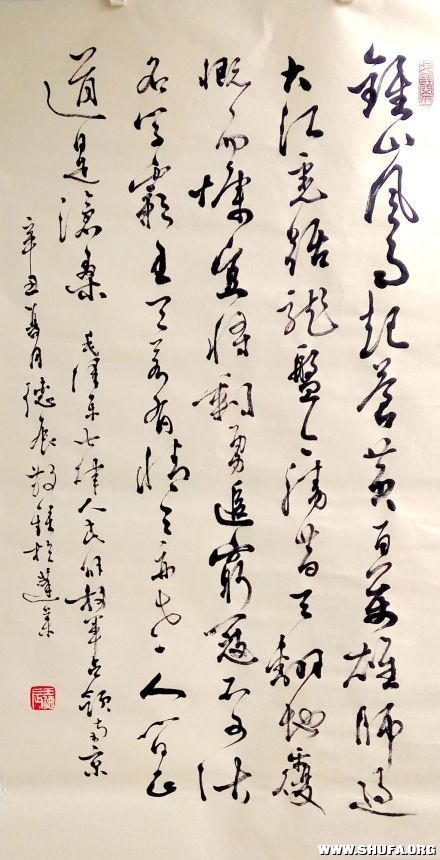 鍾山風雨起蒼黃百萬雄師過
大江虎踞龍盤今勝昔天翻地覆
慨而慷宜將剩勇追窮寇不可沽
名學霸王天若有情天亦老人間正
道是滄桑 毛澤東七律人民解放軍占領南京
辛丑夏月德辰敬錄於蓬萊
WWW.SHUFA.ORG